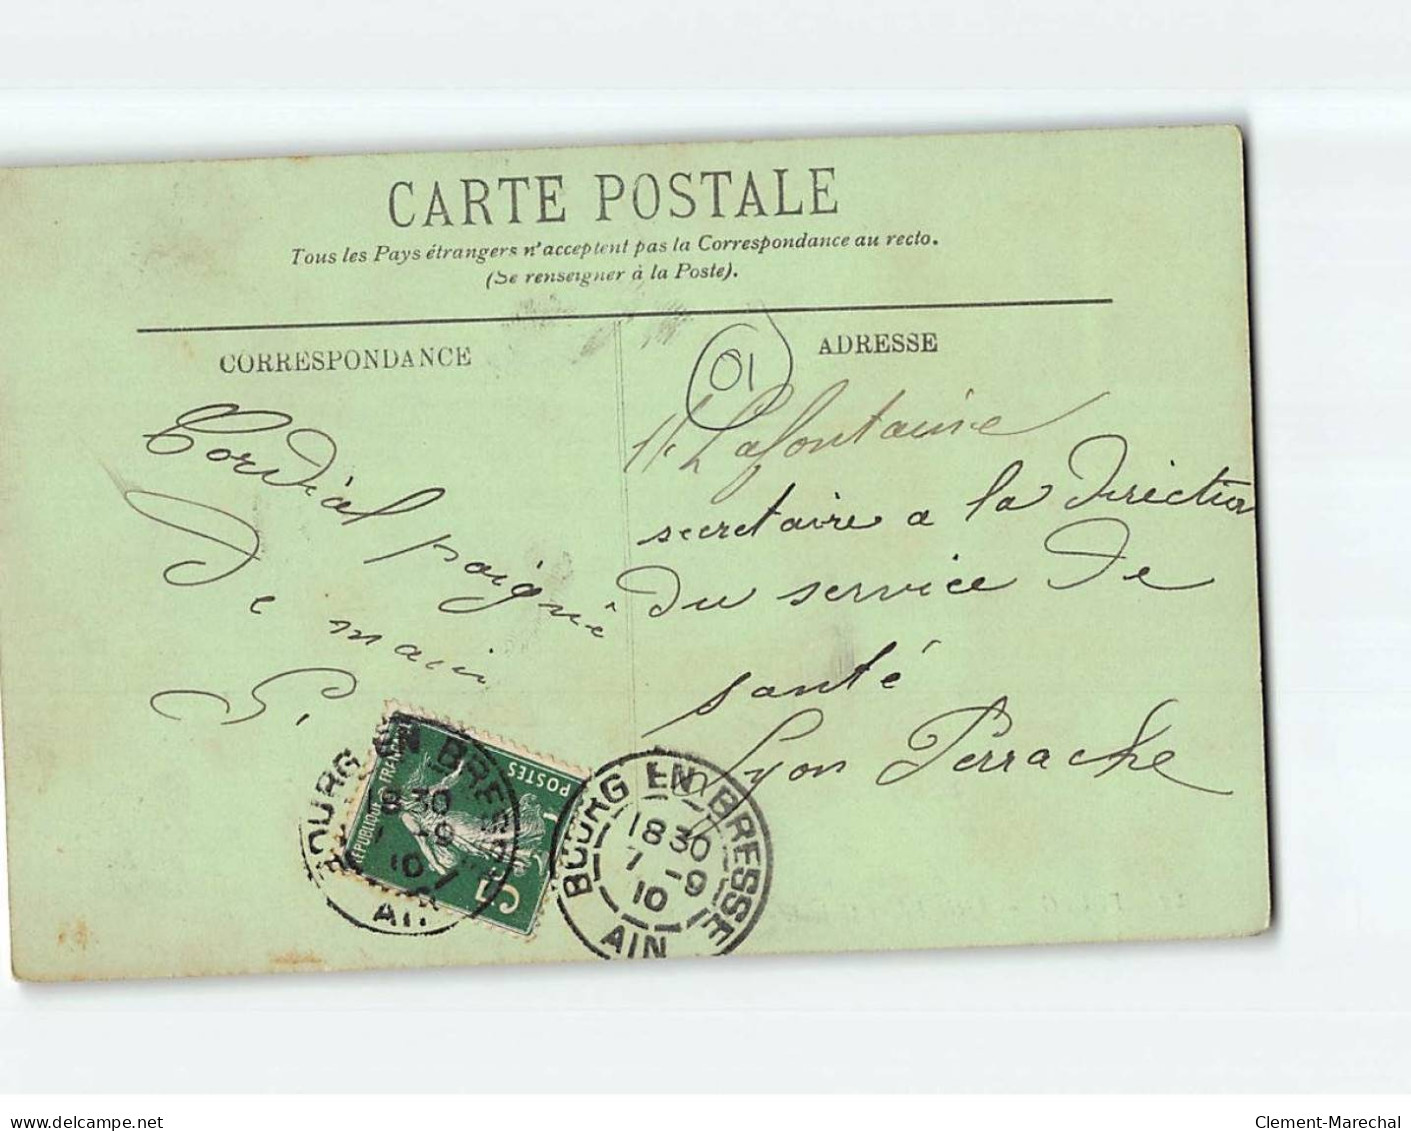 CARTE POSTALE
Tous les Pays étrangers n'acceptent pas la Correspondance au recto.
(Se renseigner à la Poste).
CORRESPONDANCE
Cordial poignè
De main
G.
ADRESSE
01
M. Lafontaine
secretaire a la Direction
du service De
santé
Lyon Perrache
BOURG EN BRESSE
18 30
7 -9
10
AIN
RÉPUBLIQUE FRANÇAISE
POSTES
5
BOURG EN BRESSE
18 30
7 -9
10
AIN
www.delcampe.net
Clement-Marechal